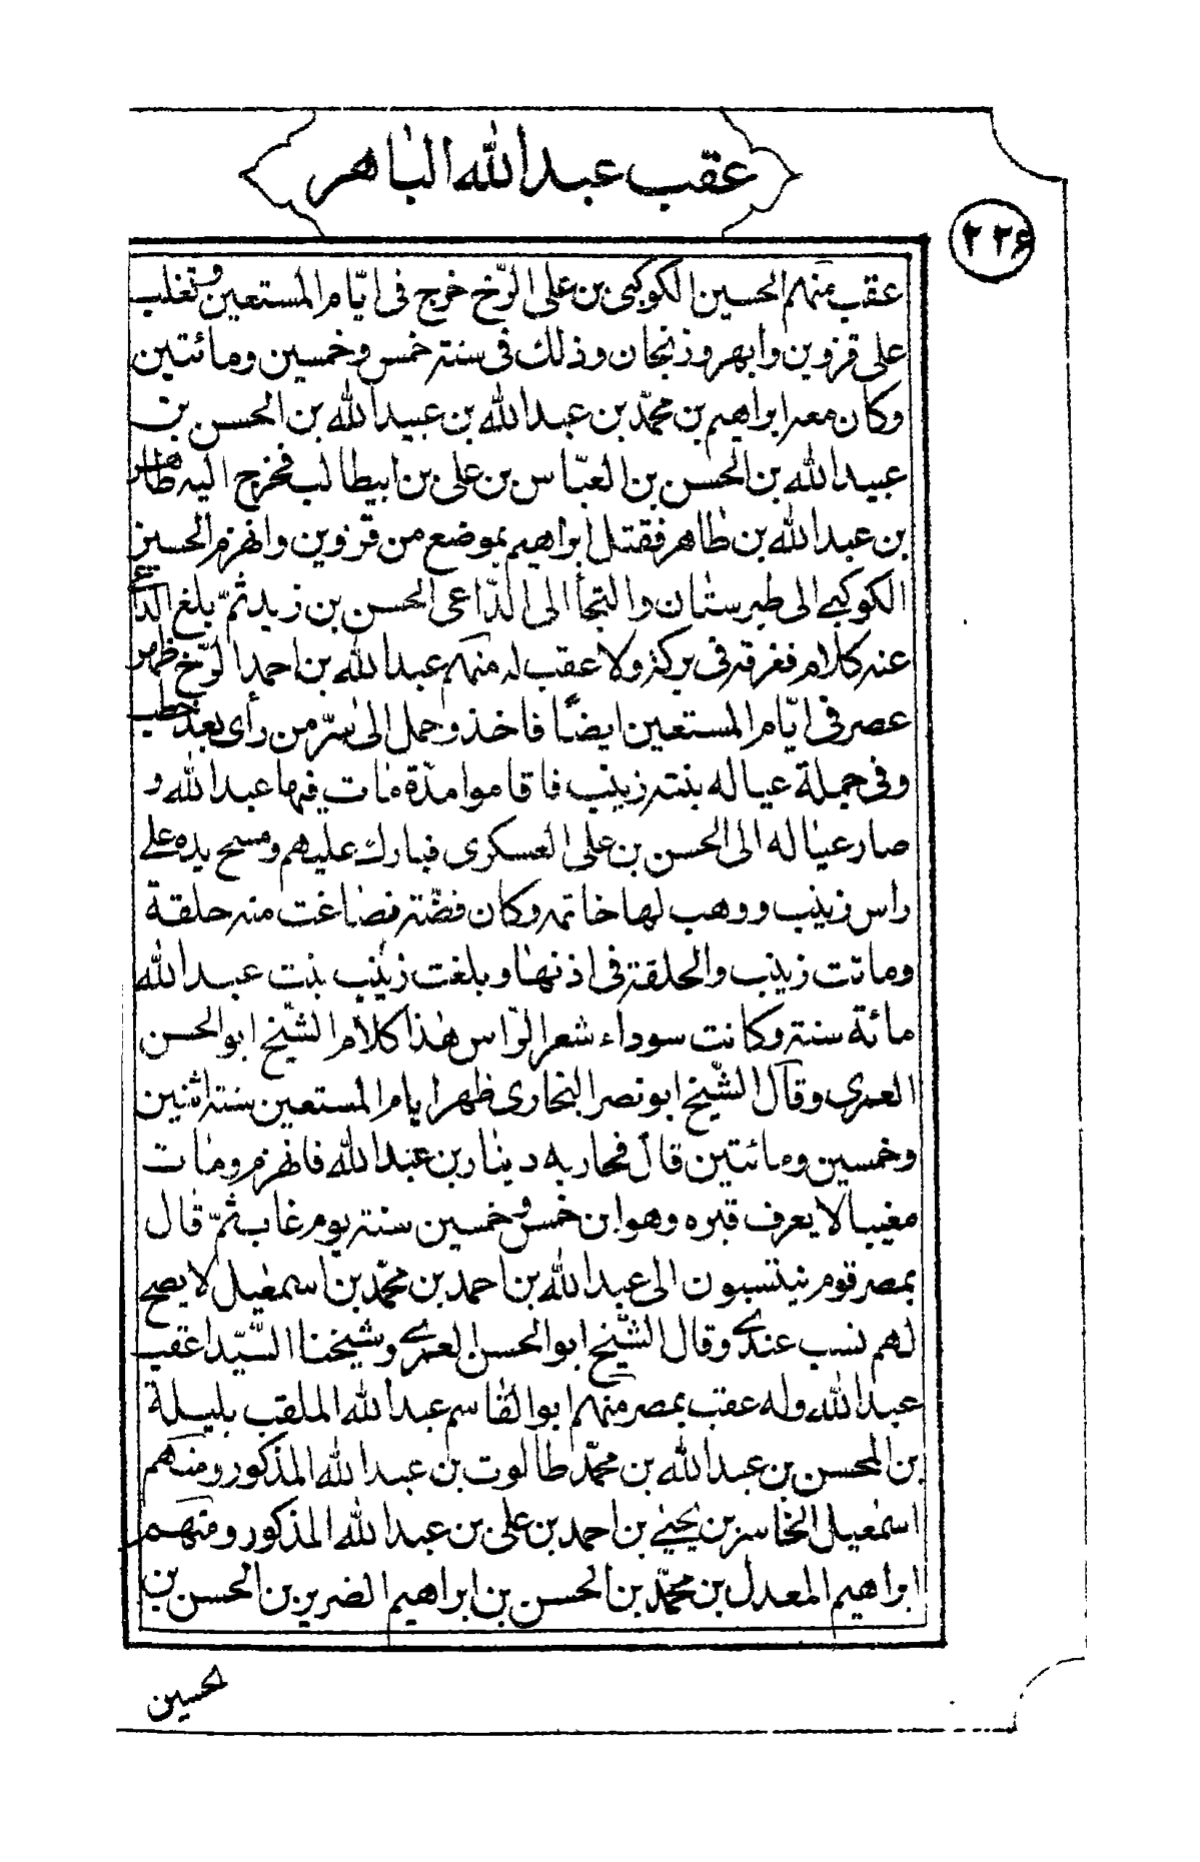 عقب عبدالله الباهر
۲۲۶
عقب منهم الحسين الكوكبى بن على الرّخ خرج فى ايّام المستعين وتغلب
على قزوين وابهر وزنجان وذلك فى سنة خمس وخمسين ومائتين
وكان معه ابراهيم بن محمّد بن عبدالله بن عبيدالله بن الحسن بن
عبيدالله بن الحسن بن العبّاس بن على بن ابيطالب فخرج اليه طاهر
بن عبدالله بن طاهر فقتل ابراهيم بموضع من قزوين وانهزم الحسين
الكوكبے الى طبرستان والتجأ الى الدّاعى الحسن بن زيد ثمّ بلغ الداعى
عنه كلام فغرقه فى بركة ولا عقب له منهم عبدالله بن احمد الرّخ ظهر
عصر فى ايّام المستعين ايضًا فاخذ وحمل الى سرّ من رأى بعد خطب
وفى جملة عياله بنته زينب فاقاموا مدّة مات فيها عبدالله و
صار عياله الى الحسن بن على العسكرى فبارك عليهم ومسح يده على
راس زينب ووهب لها خاتمه وكان فضّة فصاغت منه حلقة
وماتت زينب والحلقة فى اذنها وبلغت زينب بنت عبدالله
مائة سنة وكانت سوداء شعر الرّاس هذا كلام الشّيخ ابوالحسن
العمرى وقال الشّيخ ابونصر البخارى ظهر ايام المستعين سنة اثنين
وخمسين ومائتين قال فحاربه دينار بن عبدالله فانهزم ومات
مغيبا لا يعرف قبره وهو ابن خمس وخمسين سنة يوم غاب ثمّ قال
بمصر قوم ينتسبون الى عبدالله بن احمد بن محمّد بن اسمعيل لا يصح
لهم نسب عندے وقال الشّيخ ابوالحسن العمرے وشيخنا السّيّد اعقب
عبدالله وله عقب بمصر منهم ابوالقاسم عبدالله الملقب بليلة
بن المحسن بن عبدالله بن محمّد طالوت بن عبدالله المذكور ومنهم
اسمعيل الخاسر بن يحيى بن احمد بن على بن عبدالله المذكور ومنهم
ابراهيم المعدل بن محمّد بن الحسن بن ابراهيم الضرير بن الحسن بن
لحسين